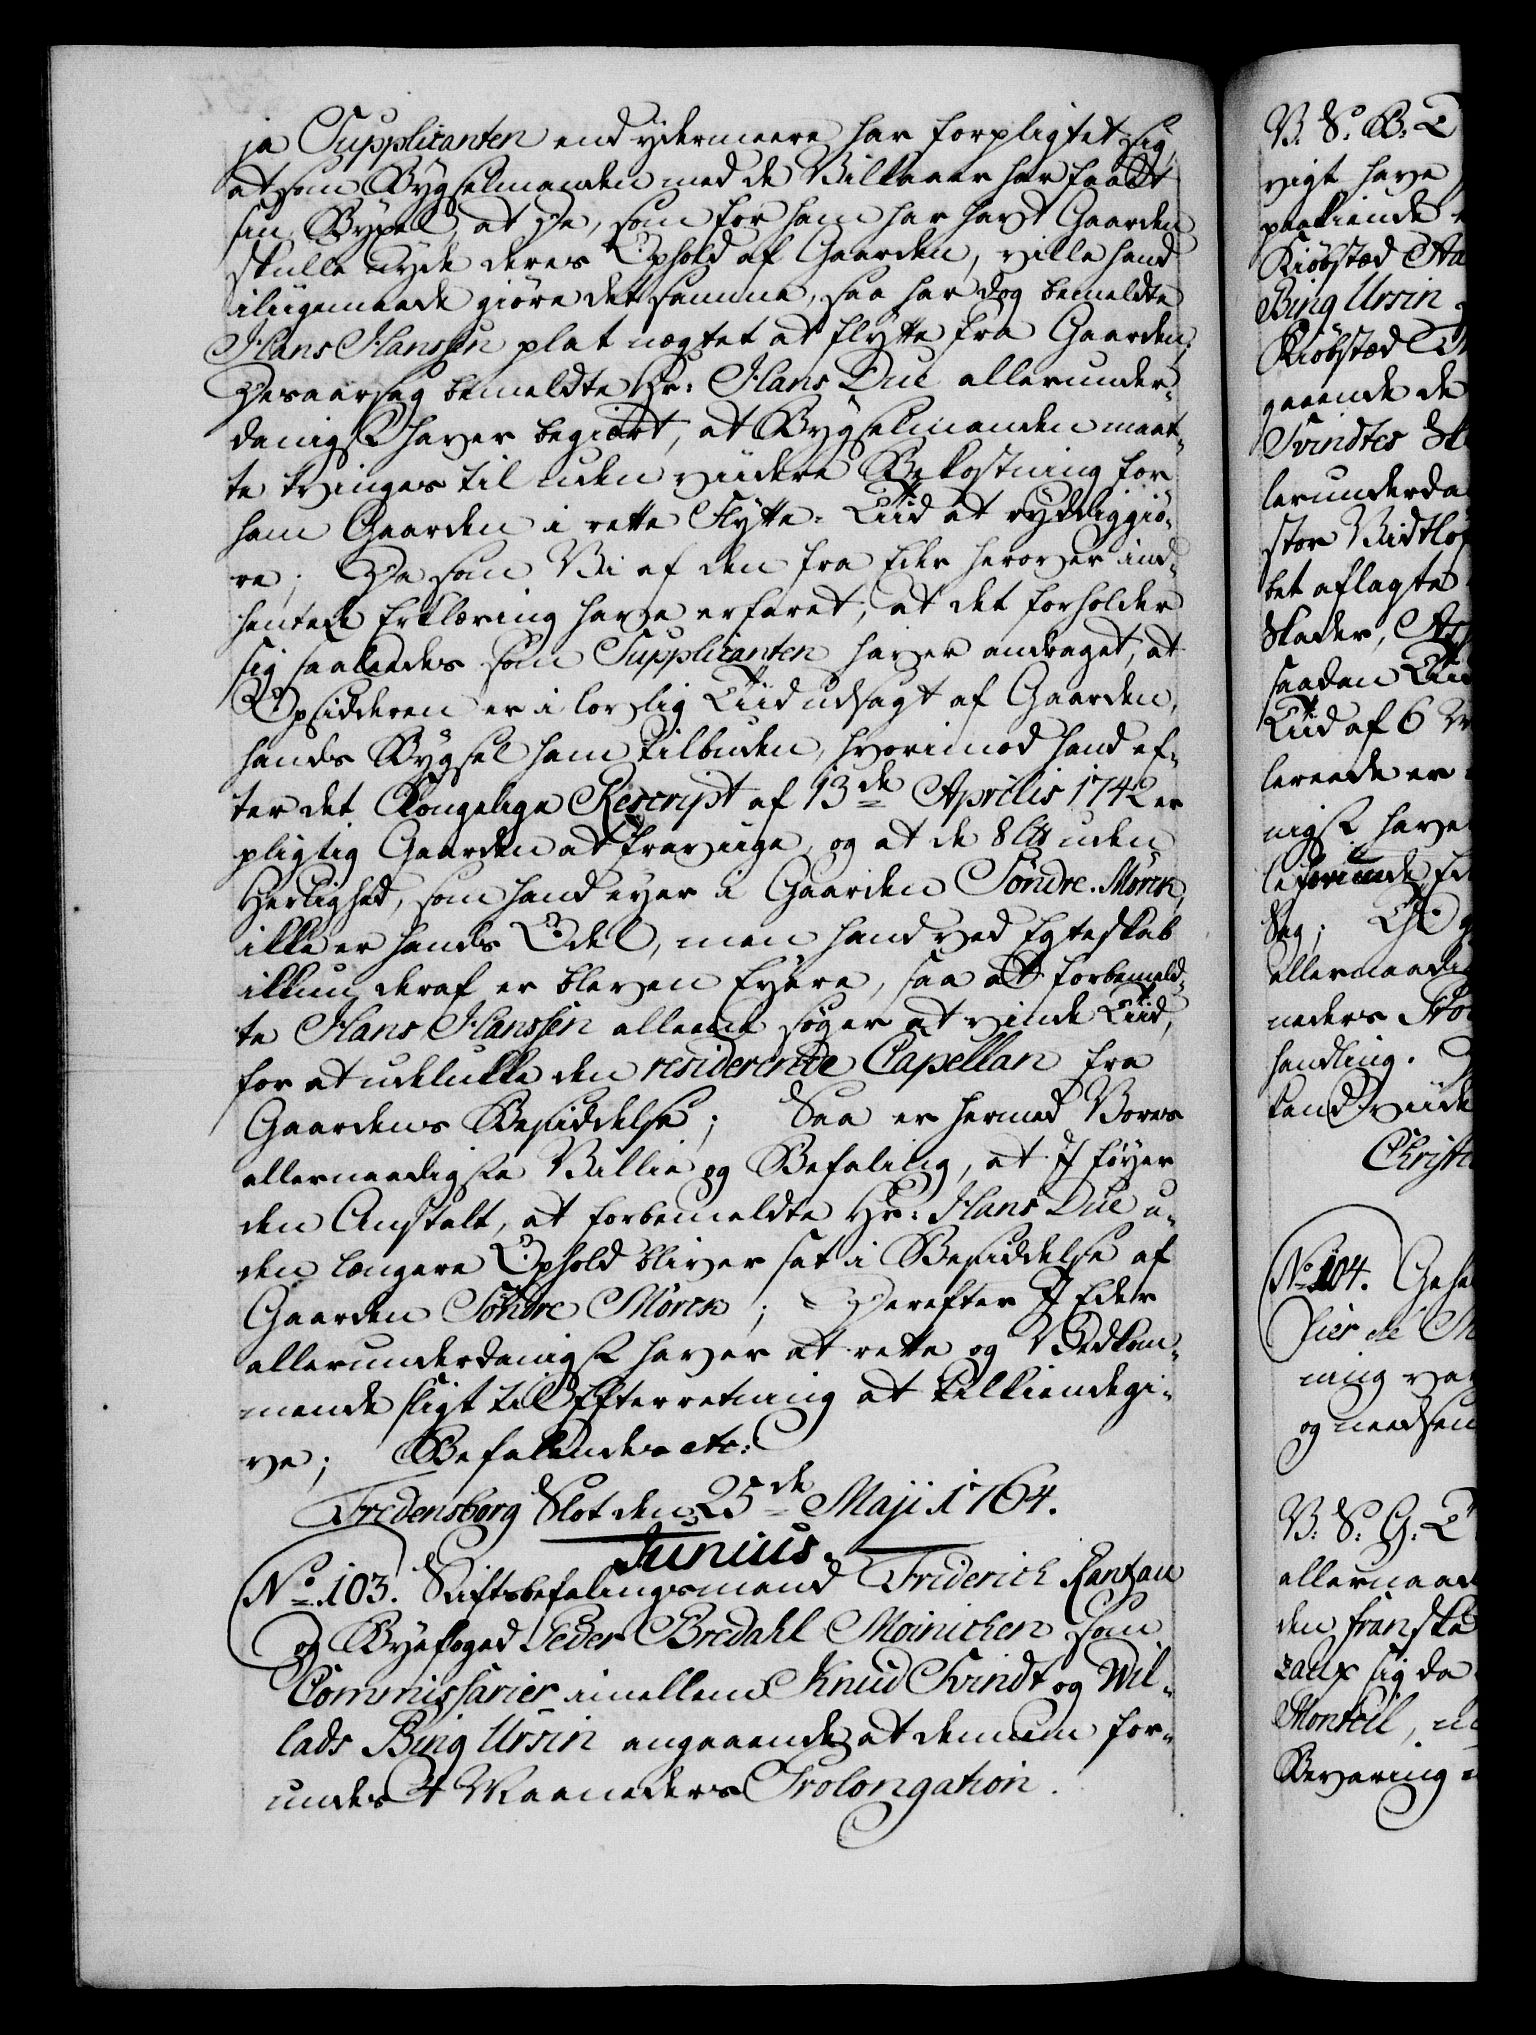 ja Supplicanten end ydermeere har forpligtet sig,
at som Bygselmanden med de Vilkaar har faaet
sin Bygsel, at De, som for ham har havt Gaarden
skulle nyde deres Ophold af Gaarden, ville hand
iligemaade giøre det samme, saa har dog bemeldte
Hans Hanssen plat nægtet at flytte fra Gaarden;
Desaarsag bemeldte Hr: Hans Due allerunder-
danigst haver begiært, at Bygselmanden maat-
te tvinges til uden viidere Bekostning for
ham Gaarden i rette Flytte-Tiid at ryddiggiø-
re; Da som Vi af den fra Eder herover ind-
hentede Erklæring have erfaret, at det forholder
sig saaledes som Supplicanten haver andraget, at
Opsidderen er i lovlig Tiid udsagt af Gaarden,
hands Bygsel ham tilbuden, hvorimod hand ef-
ter det Kongelige Rescript af 13de Aprilis 1742 er
pligtig Gaarden at fravige, og at de 8 uden
Herlighed, som hand eyer i Gaarden Søndre Mörch,
ikke er hands Odel, men hand ved Egteskab
ikkun deraf er bleven Eyere, saa at forbemeld-
te Hans Hanssen alleene søger at vinde Tiid,
for at udelukke den residerende Capellan fra
Gaardens Besiddelse; Saa er hermed Vores
allernaadigste Villie og Befaling, at I føyer
den Anstalt, at forbemeldte Hr: Hans Due u-
den længere Ophold bliver sat i Besiddelse af
Gaarden Söndre Mörch; Derefter I Eder
allerunderdanigst haver at rette og Vedkom-
mende sligt til Efterretning at tilkiendegi-
ve; Befalendes etc:
Fredensborg Slot den 25de Maji 1764.
Junius.
No 103. Stiftsbefalingsmand Friderich Rantzau
og Byefoged Peder Bredahl Moinichen som
Commissarier imellem Knud Tvindt og Wil-
lads Bing Ursin angaaende at dennem for-
undes 4 Maaneders Prolongation.
V. S. B: T
vigt have
paakiende
Kiøbstæd Aa
Bing Ursin
Kiøbstæd
gaaende de
Tvindtes Sk
lerunderda
stor Vidtløf
bet aflagte
Skader,
saadan Tiid
Tiid af 6
lereede er
nigst have
Sag;
allernaadi
neders Pro
handling.
kand viide
Christi
No 104. Gehe
ning ved
og needsen
V: S: G: T
allernaad
den franske
zaux sig da
Monteil,
Bevaring